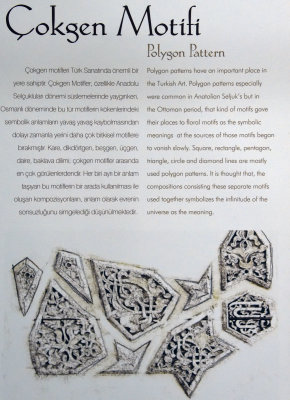 Çokgen Motifi
Polygon Pattern
Çokgen motifleri Türk Sanatında önemli bir
yere sahiptir. Çokgen Motifler, özellikle Anadolu
Selçukluları dönemi süslemelerinde yaygınken,
Osmanlı döneminde bu tür motiflerin kökenlerindeki
sembolik anlamların yavaş yavaş kaybolmasından
dolayı zamanla yerini daha çok bitkisel motiflere
bırakmıştır. Kare, dikdörtgen, beşgen, üçgen,
daire, baklava dilimi; çokgen motifler arasında
en çok görülenlerdendir. Her biri ayrı bir anlam
taşıyan bu motiflerin bir arada kullanılması ile
oluşan kompozisyonların, anlam olarak evrenin
sonsuzluğunu simgelediği düşünülmektedir.
Polygon patterns have an important place in
the Turkish Art. Polygon patterns especially
were common in Anatolian Seljuk's but in
the Ottoman period, that kind of motifs gave
their places to floral motifs as the symbolic
meanings at the sources of those motifs began
to vanish slowly. Square, rectangle, pentagon,
triangle, circle and diamond lines are mostly
used polygon patterns. It is thought that, the
compositions consisting these separate motifs
used together symbolizes the infinitude of the
universe as the meaning.